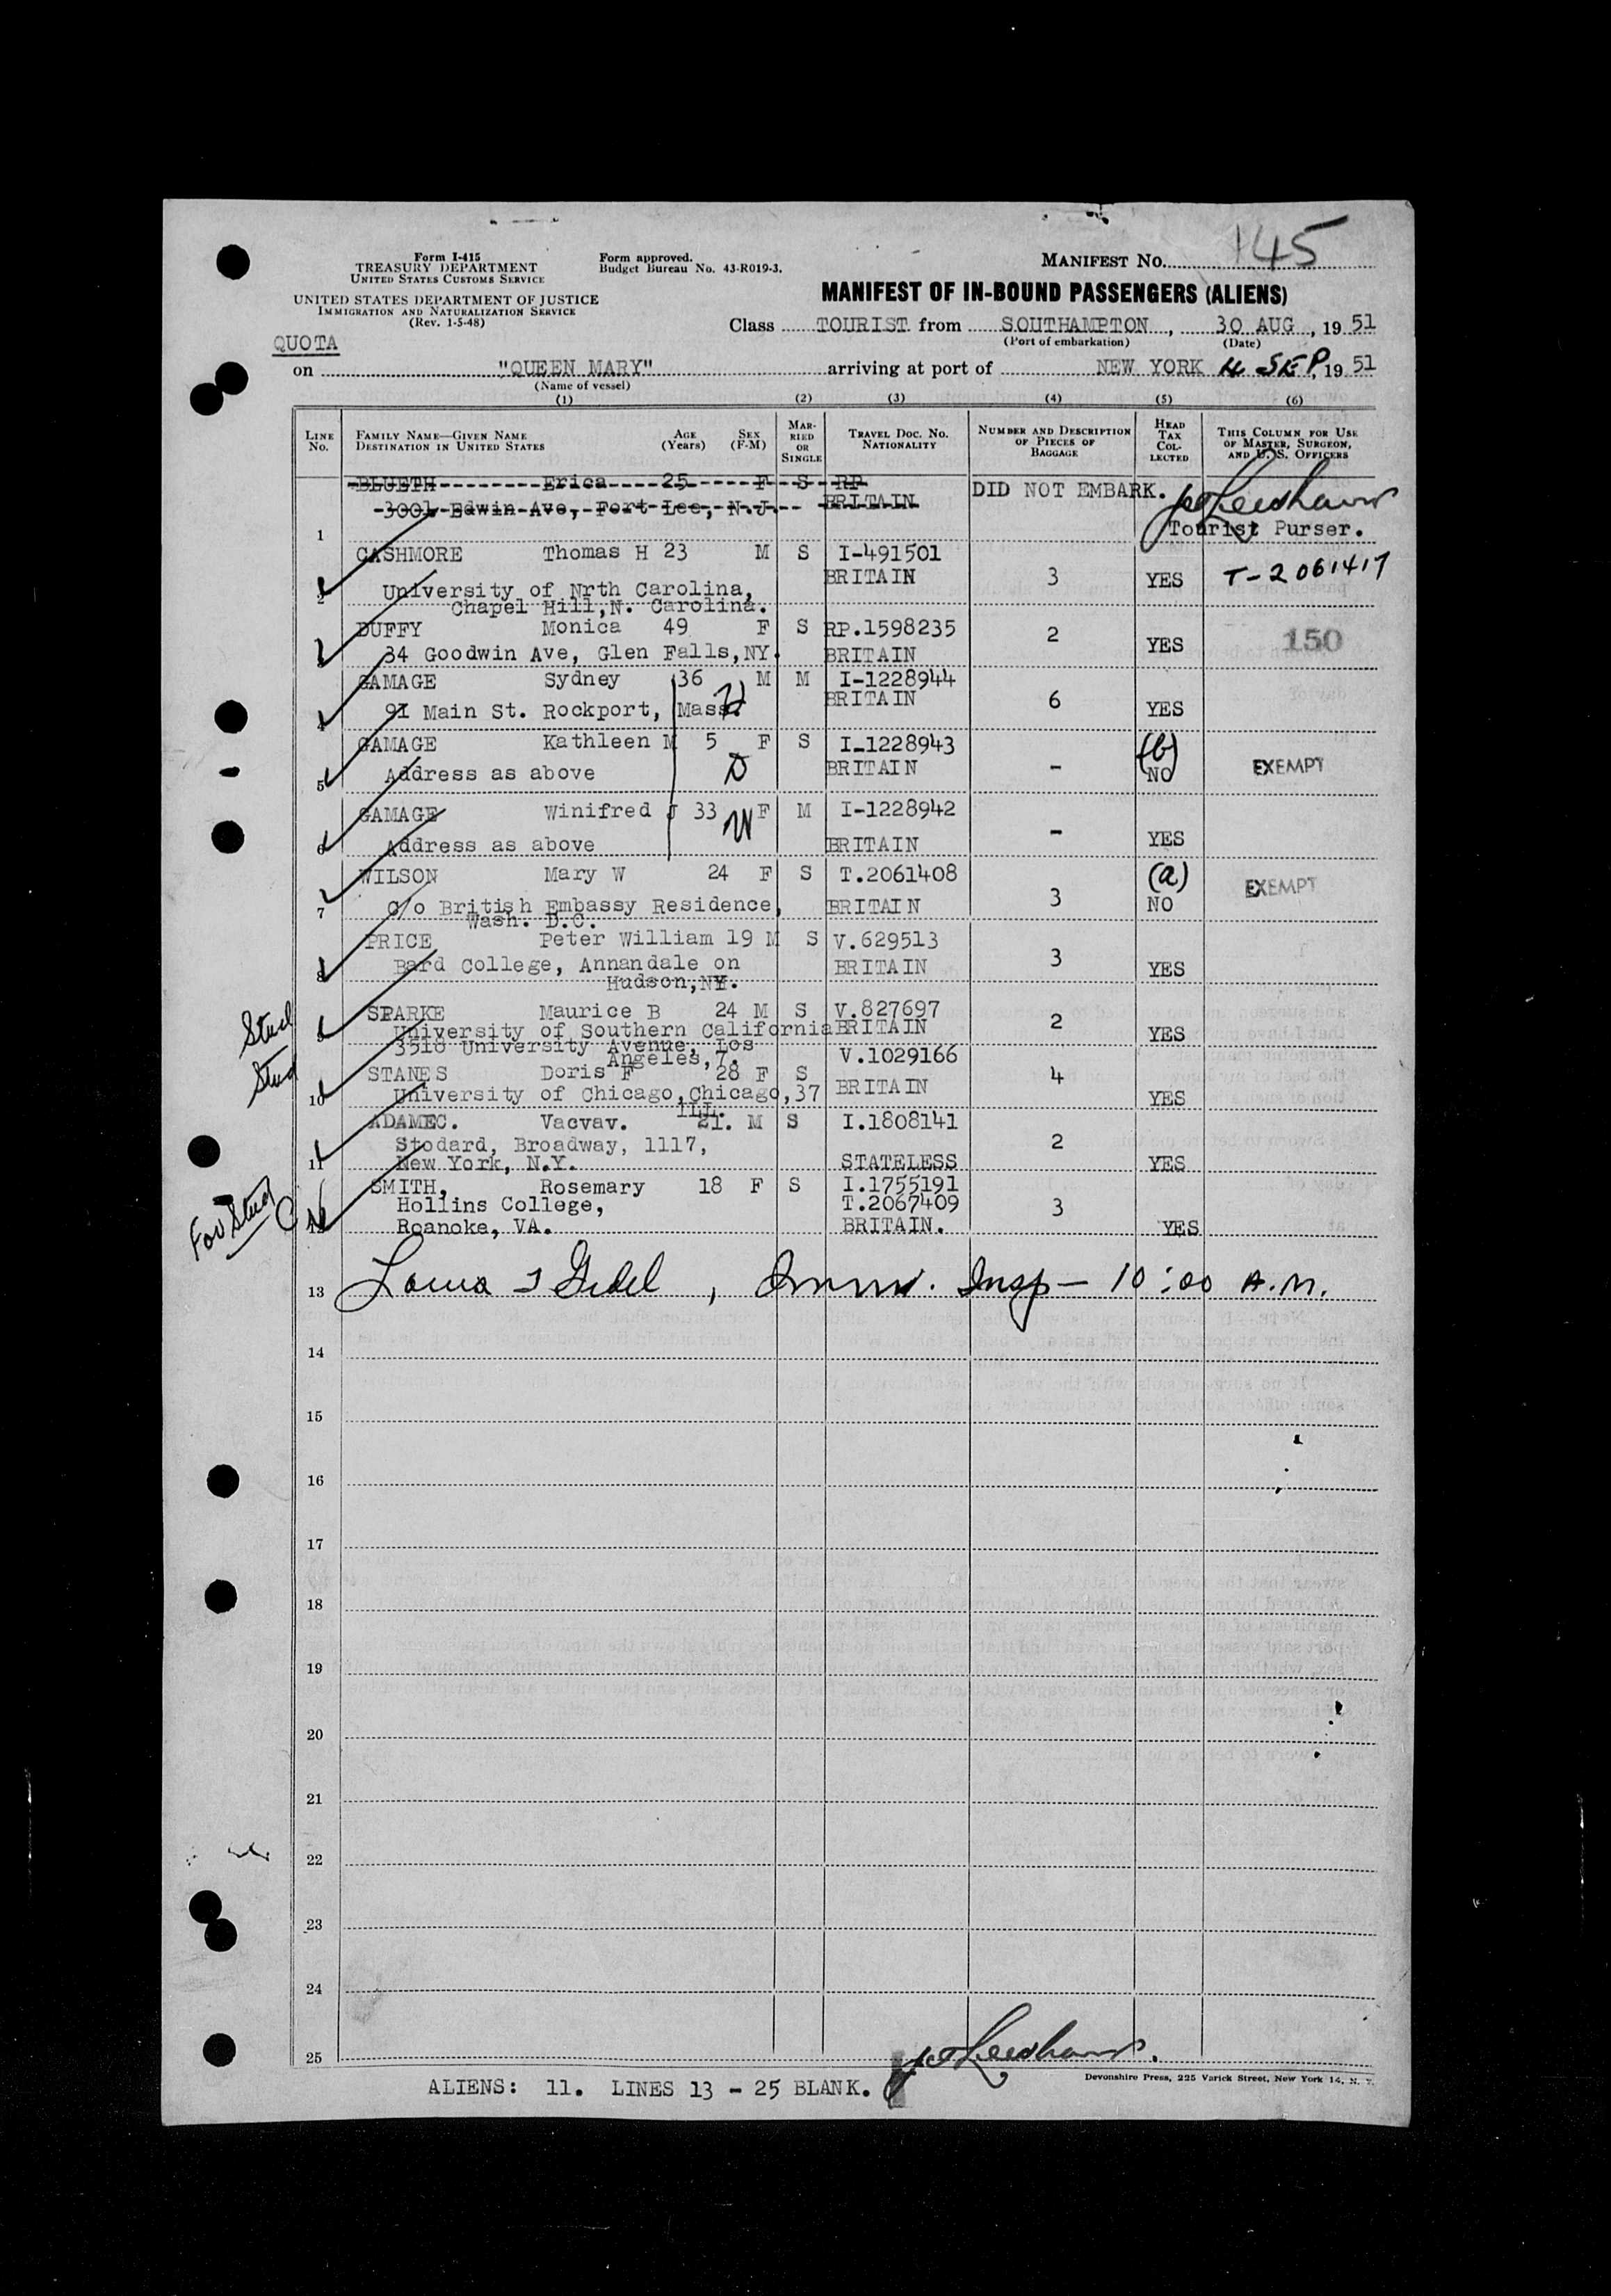 145
Form I-415
TREASURY DEPARTMENT
UNITED STATES CUSTOMS SERVICE
Form approved.
Budget Bureau No. 43-R019-3.
MANIFEST No.
UNITED STATES DEPARTMENT OF JUSTICE
IMMIGRATION AND NATURALIZATION SERVICE
(Rev. 1-5-48)
MANIFEST OF IN-BOUND PASSENGERS (ALIENS)
Class TOURIST from SOUTHAMPTON, 30 AUG, 19 51
(Port of embarkation) (Date)
QUOTA
on "QUEEN MARY" arriving at port of NEW YORK 4 SEP, 19 51
(Name of vessel)
(1) (2) (3) (4) (5) (6)
LINE No. FAMILY NAME—GIVEN NAME DESTINATION IN UNITED STATES AGE (Years) SEX (F-M) MARRIED OR SINGLE TRAVEL DOC. No. NATIONALITY NUMBER AND DESCRIPTION OF PIECES OF BAGGAGE HEAD TAX COLLECTED THIS COLUMN FOR USE OF MASTER, SURGEON, AND U. S. OFFICERS
BLUETH Erica 25 F S RP
3001 Edwin Ave, Fort Lee, N.J. BRITAIN DID NOT EMBARK.
1 Tourist Purser.
CASHMORE Thomas H 23 M S I-491501
2 University of Nrth Carolina, BRITAIN 3 YES T-2061417
Chapel Hill,N. Carolina.
DUFFY Monica 49 F S RP.1598235 2 YES 150
34 Goodwin Ave, Glen Falls,NY. BRITAIN
GAMAGE Sydney 36 M M I-1228944
4 91 Main St. Rockport, Mass. H BRITAIN 6 YES
GAMAGE Kathleen M 5 F S I-1228943 (b)
5 Address as above D BRITAIN - NO EXEMPT
GAMAGE Winifred J 33 F M I-1228942
6 Address as above W BRITAIN - YES
WILSON Mary W 24 F S T.2061408 (a)
7 C/o British Embassy Residence, BRITAIN 3 NO EXEMPT
Wash. D.C.
PRICE Peter William 19 M S V.629513
8 Bard College, Annandale on BRITAIN 3 YES
Hudson,NY.
Stud
SPARKE Maurice B 24 M S V.827697
9 University of Southern California BRITAIN 2 YES
3518 University Avenue, Los
Angeles,7.
Stud
STANES Doris F 28 F S V.1029166
10 University of Chicago,Chicago,37 BRITAIN 4 YES
ILL.
ADAMEC. Vacvav. 21. M S I.1808141
Stodard, Broadway, 1117, 2
11 New York, N.Y. STATELESS YES
For Stud
SMITH, Rosemary 18 F S I.1755191
Hollins College, T.2067409 3
12 Roanoke, VA. BRITAIN. YES
13 , Immi. Insp — 10:00 A.M.
14
15
16
17
18
19
20
21
22
23
24
25
ALIENS: 11. LINES 13 - 25 BLANK.
Devonshire Press, 225 Varick Street, New York 14, N. Y.